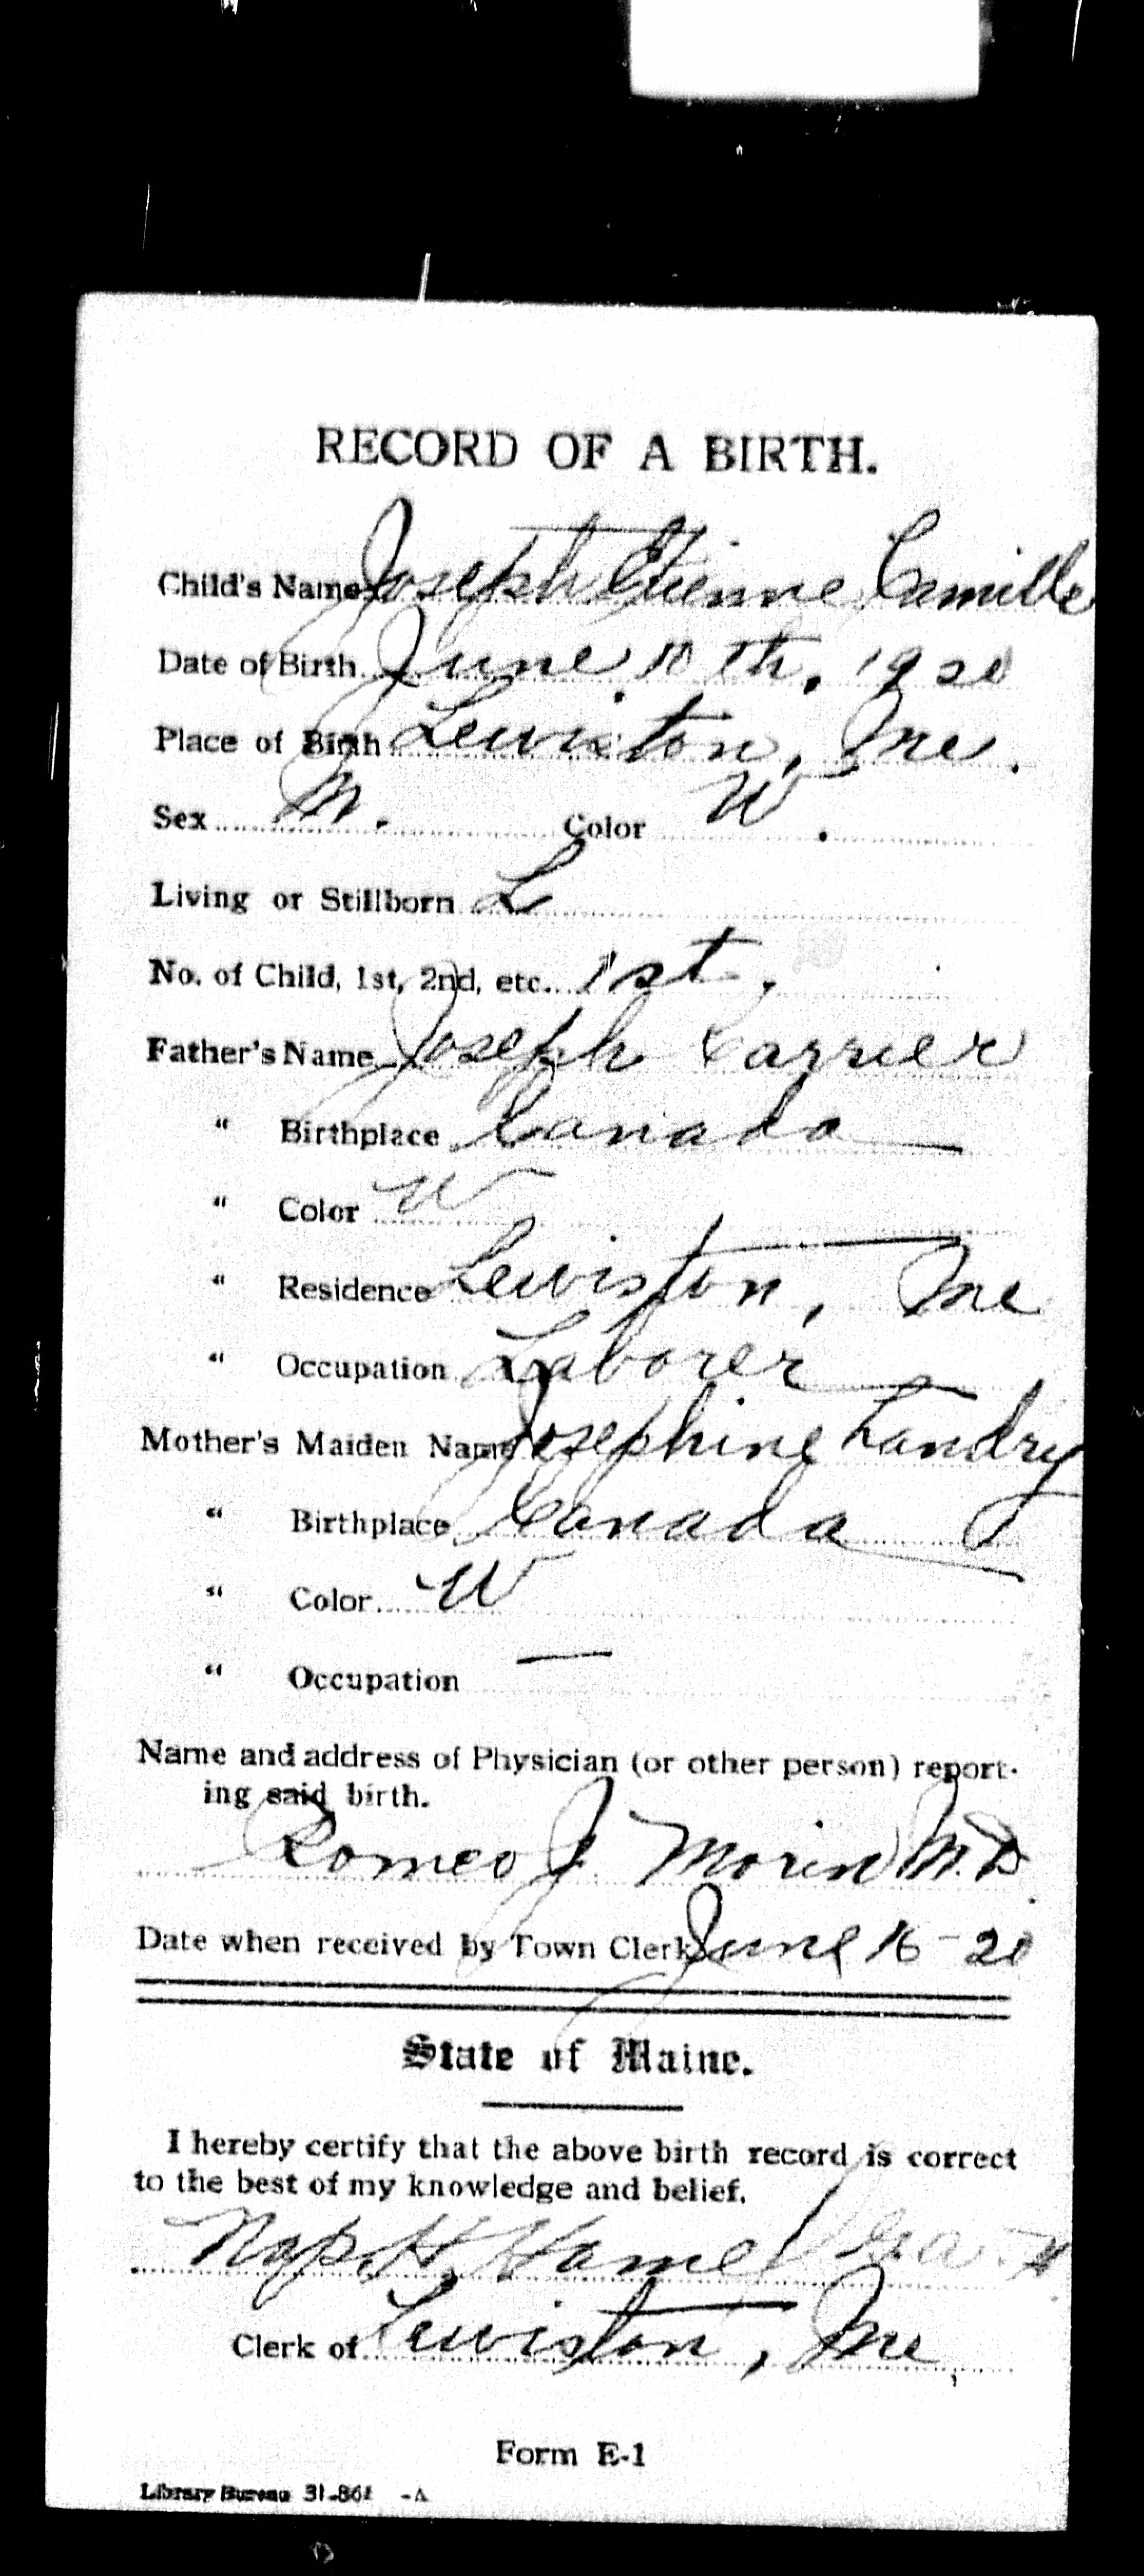 RECORD OF A BIRTH.
Child's Name Joseph Etienne Camille
Date of Birth June 10 th, 1920
Place of Birth Lewiston, Me.
Sex M. Color W.
Living or Stillborn L
No. of Child, 1st, 2nd, etc. 1st,
Father's Name Joseph Carrier
" Birthplace Canada
" Color W
" Residence Lewiston, Me
" Occupation Laborer
Mother's Maiden Name Josephine Landry
" Birthplace Canada
" Color W
" Occupation —
Name and address of Physician (or other person) report-
ing said birth.
Romeo J. Morin M.D.
Date when received by Town Clerk June 16-20
State of Maine.
I hereby certify that the above birth record is correct
to the best of my knowledge and belief.
Nap. H. Hamel
Clerk of Lewiston, Me,
Form E-1
Library Bureau 31-861 -A